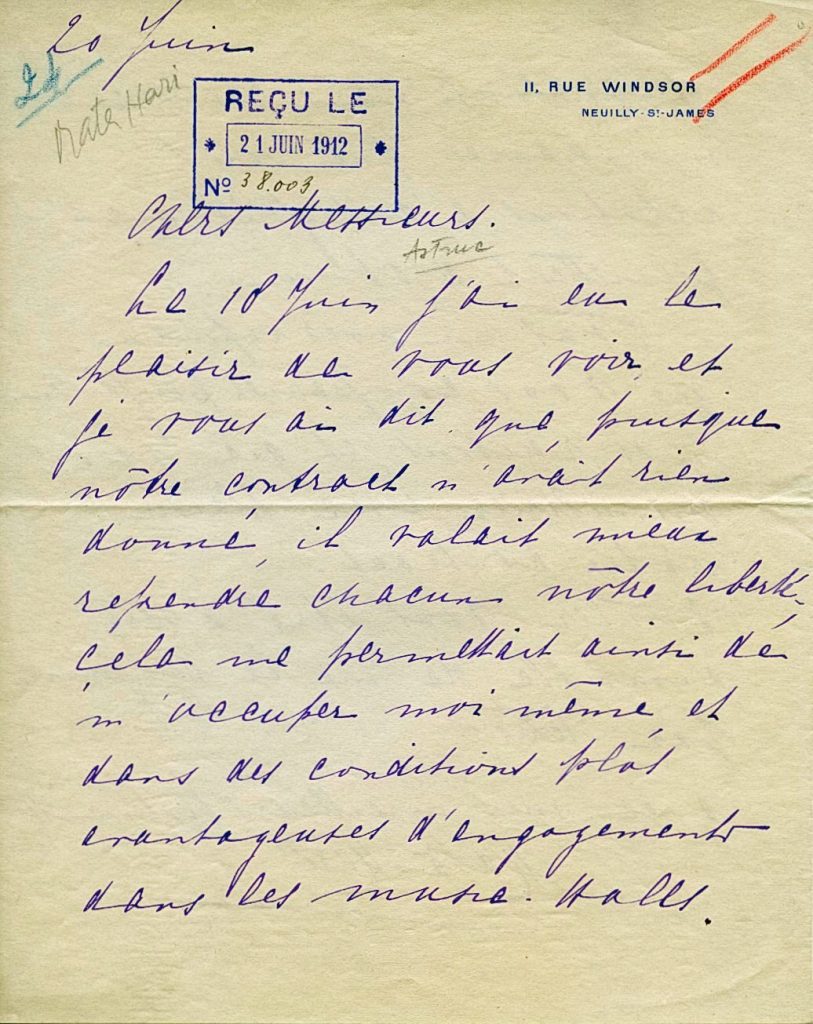 20 Juin
Mata Hari
11, RUE WINDSOR
NEUILLY-St-JAMES
REÇU LE
21 JUIN 1912
No 38.003
Chers Messieurs.
Astruc
Le 18 Juin j'ai eu le
plaisir de vous voir, et
je vous ai dit, que, puisque
nôtre contract n'avait rien
donné, il valait mieux
reprendre chacun nôtre liberté,
céla me permettait ainsi de
m'occuper moi même, et
dans des conditions plus
avantageuses d'engagements
dans les music-Halls.